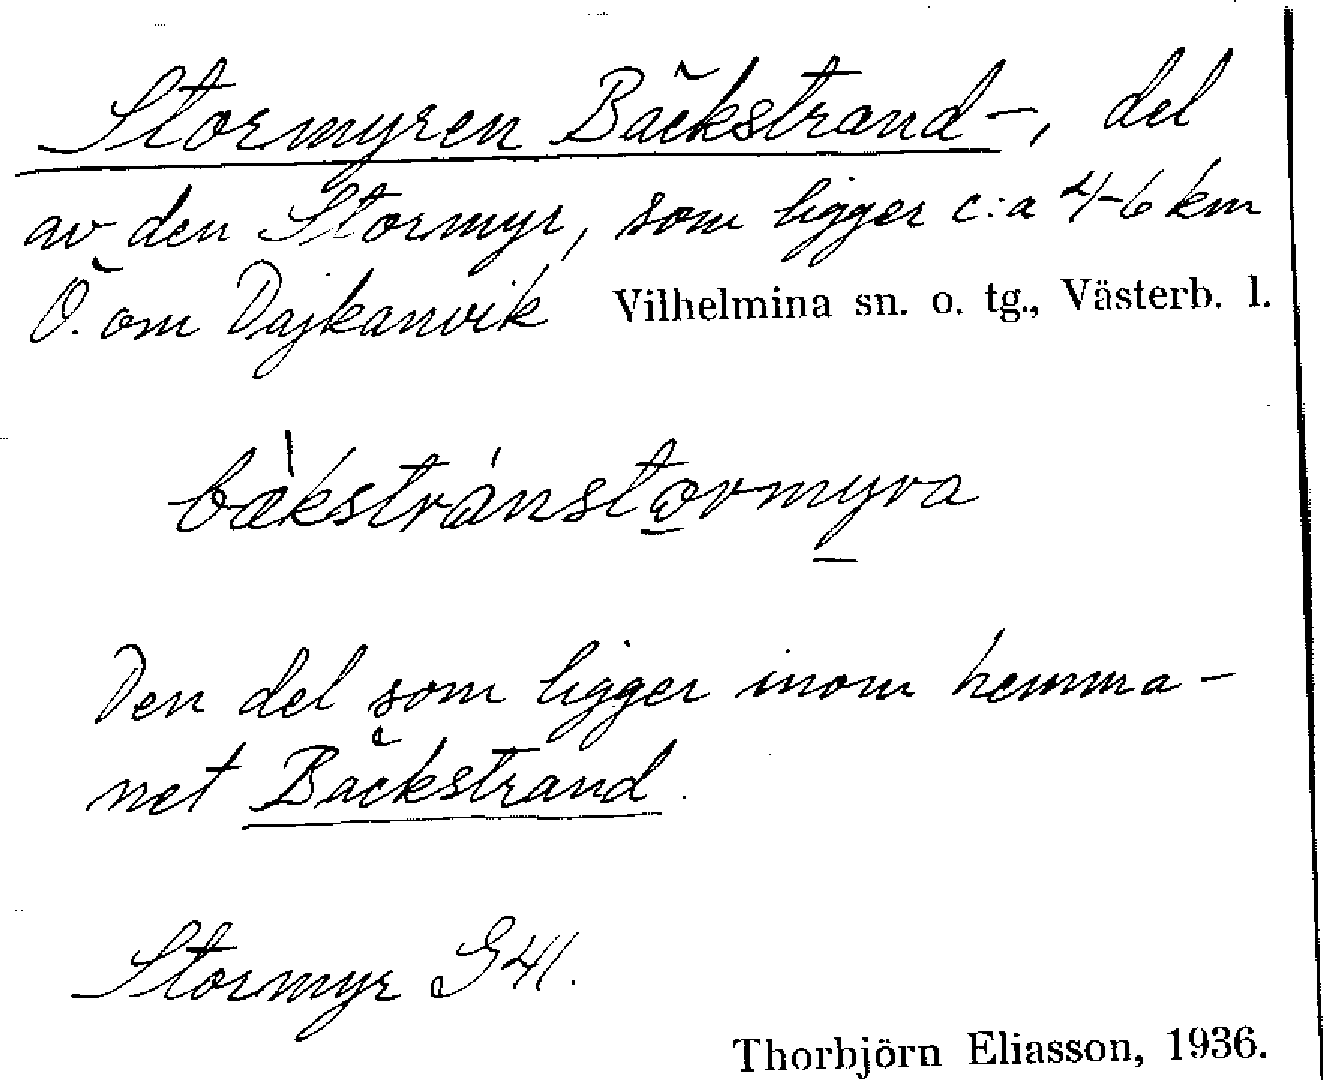 Stormyren Bäckstrand-, del
av den Stormyr, som ligger c:a 4-6 km
Ö. om Dajkanvik Vilhelmina sn. o. tg., Västerb. l.
bækstránstormyra
Den del som ligger inom hemma-
net Bäckstrand.
Stormyr G41.
Thorbjörn Eliasson, 1936.